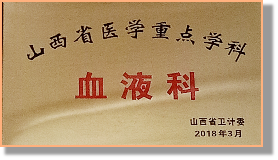 山西省医学重点学科
血液科
山西省卫计委
2018年3月